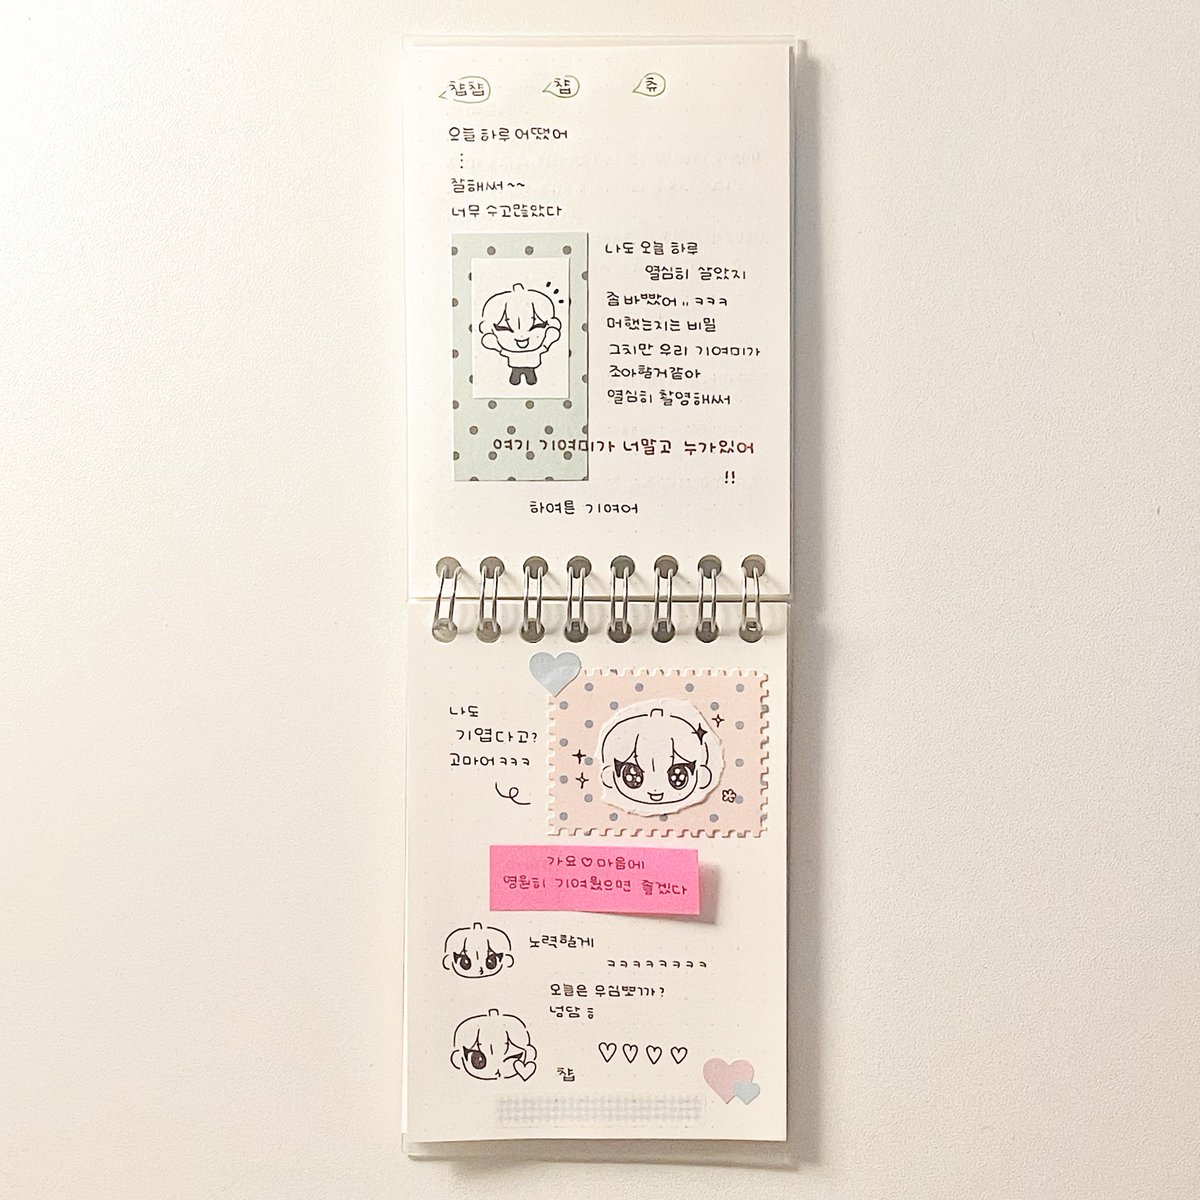 챱챱 챱 츄
오늘 하루 어땠어
⋮
잘해써~~
너무 수고많았다
나도 오늘 하루
열심히 살았지
좀 바빴어.. ㅋㅋㅋ
머했는지는 비밀
그치만 우리 기여미가
조아할거같아
열심히 촬영해써
여기 기여미가 너말고 누가있어
!!
하여튼 기여어
나도
기엽다고?
고마어ㅋㅋㅋ
가요♡마음에
영원히 기여웠으면 좋겠다
노력할게
ㅋㅋㅋㅋㅋㅋㅋㅋ
오늘은 우심뽀까?
넝담ㅎ
♡♡♡♡
챱